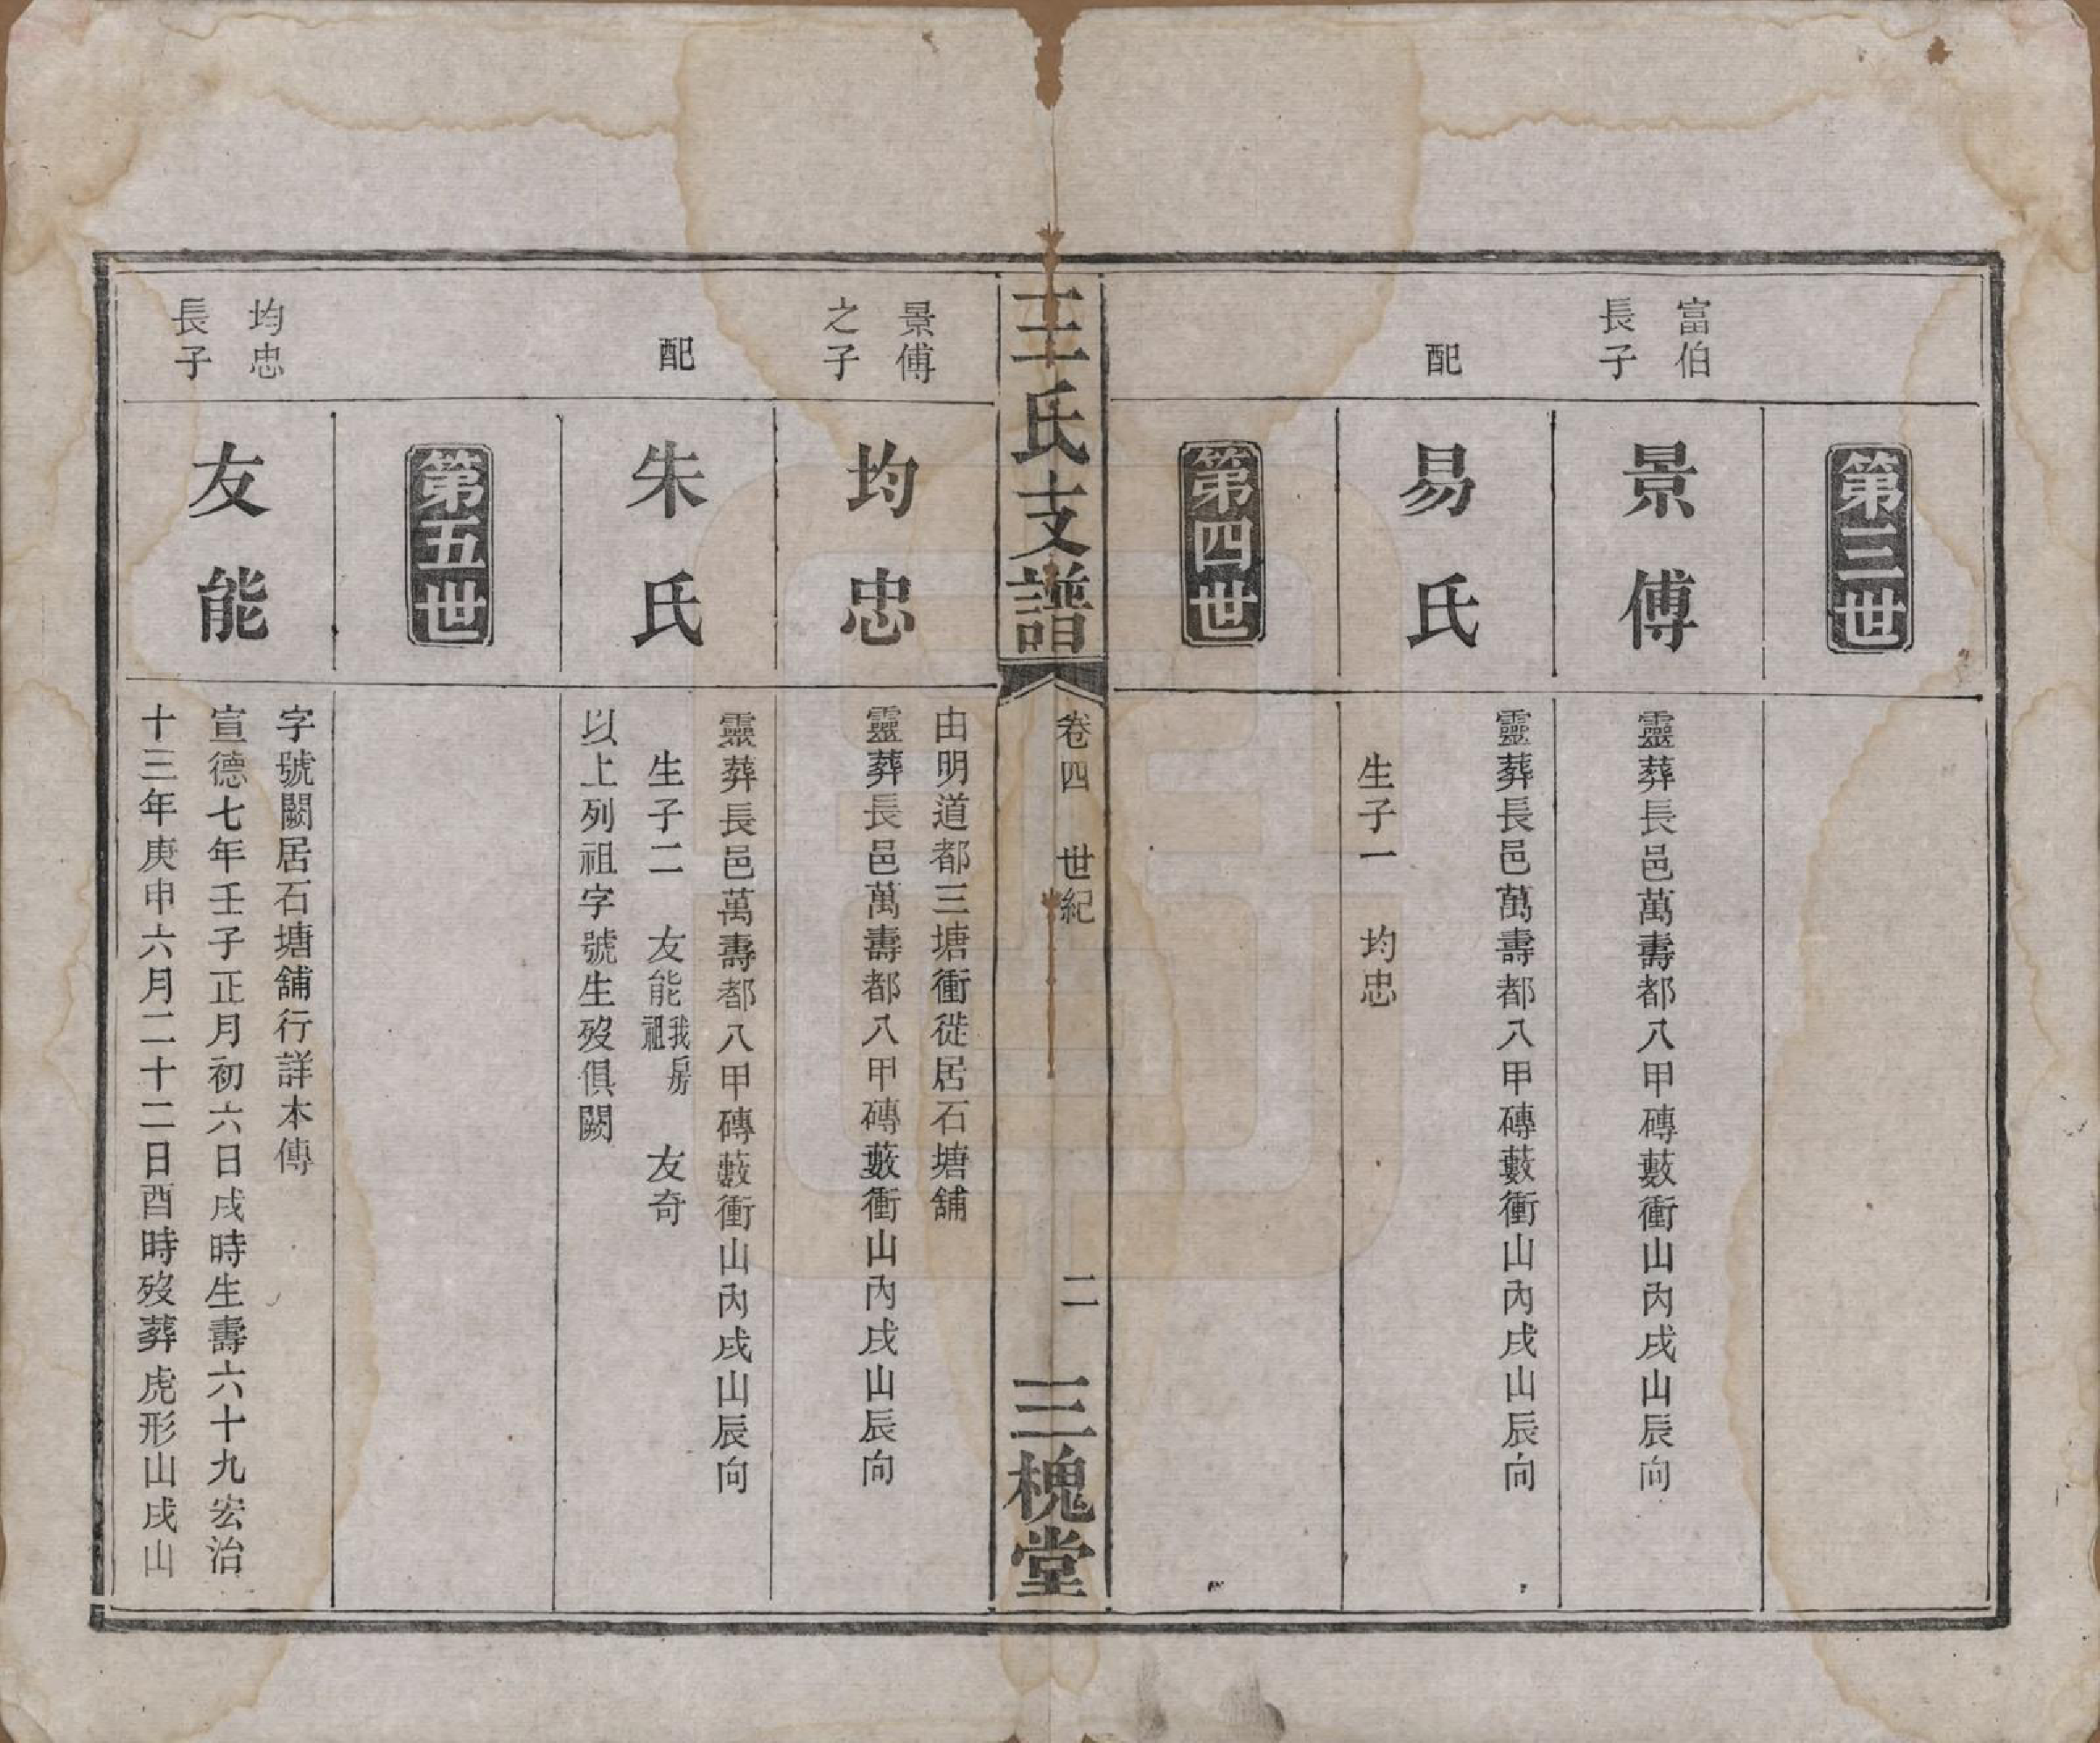 第三世
富伯
長子
景傅
靈葬長邑萬壽都八甲磚藪衝山內戌山辰向
配
易氏
靈葬長邑萬壽都八甲磚藪衝山內戌山辰向
生子一　均忠
第四世
王氏支譜
卷四　世紀
二
三槐堂
景傅
之子
均忠
由明道都三塘衝徙居石塘舖
靈葬長邑萬壽都八甲磚藪衝山內戌山辰向
配
朱氏
靈葬長邑萬壽都八甲磚藪衝山內戌山辰向
生子二　友能我房祖　友奇
以上列祖字號生歿俱闕
第五世
均忠
長子
友能
字號闕居石塘舖行詳本傳
宣德七年壬子正月初六日戌時生壽六十九宏治
十三年庚申六月二十二日酉時歿葬虎形山戌山